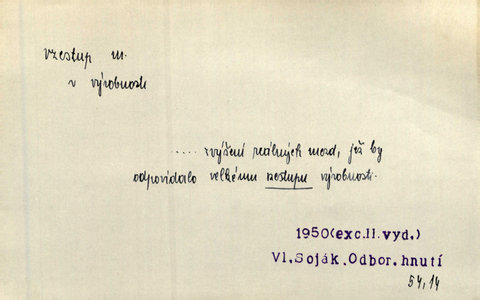 vzestup m.
v výrobnosti
.... zvýšení reálných mezd, jež by
odpovídalo velkému vzestupu výrobnosti.
1950(exc.II.vyd.)
Vl.Soják.Odbor.hnutí
54,14